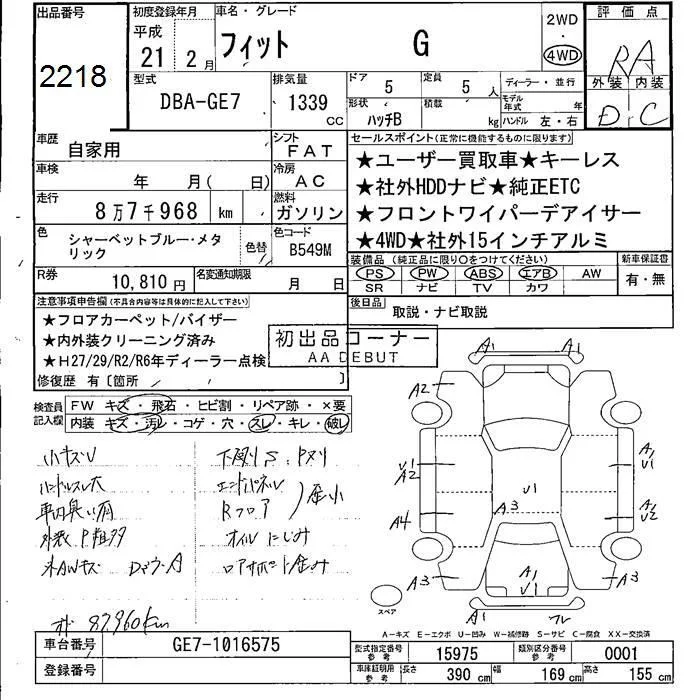 出品番号
2218
初度登録年月
平成
21年 2月
車名・グレード
フィット G
2WD
・
4WD
評価点
RA
外装 内装
D C
型式
DBA-GE7
排気量
1339 CC
ドア 5
定員 5人
形状 ハッチB
積載 kg
ディーラー・並行
モデル年式 年
ハンドル 左・右
車歴
自家用
シフト
FAT
車検
年 月( 日)
冷房
AC
走行
8万7千968 km
燃料
ガソリン
色
シャーベットブルー・メタリック
色替
色コード
B549M
R券
10,810円
名変通知期限
月 日
セールスポイント(正常に機能するものに限ります)
★ユーザー買取車★キーレス
★社外HDDナビ★純正ETC
★フロントワイパーデアイサー
★4WD★社外15インチアルミ
装備品 (純正品に限り○をつけてください)
PS PW ABS エアB AW
SR ナビ TV カワ
新車保証書
有・無
後日品
取説・ナビ取説
注意事項申告欄(不具合内容等は具体的に記入して下さい)
★フロアカーペット/バイザー
★内外装クリーニング済み
★H27/29/R2/R6年ディーラー点検
修復歴 有〔箇所 〕
初出品コーナー
AA DEBUT
検査員記入欄
FW キズ・飛石・ヒビ割・リペア跡・×要
内装 キズ・汚レ・コゲ・穴・スレ・キレ・破レ
小キズU
ハンドルスレ大
車内臭い有
外AWキズ
下廻りS、Pヌリ
エンドパネル
Rフロア
歪小
オイルにじみ
オド 87,960km
A1
A1
A2
U1
A2
A4
A3
A3
U1
A1
U1
A1
U1
U2
A3
A1
フレ
スペア
A-キズ E-エクボ U-凹み W-補修跡 S-サビ C-腐食 XX-交換済
車台番号
GE7-1016575
登録番号
型式指定番号 参考
15975
類別区分番号 参考
0001
車庫証明用 参考
長さ 390 cm
幅 169 cm
高さ 155 cm